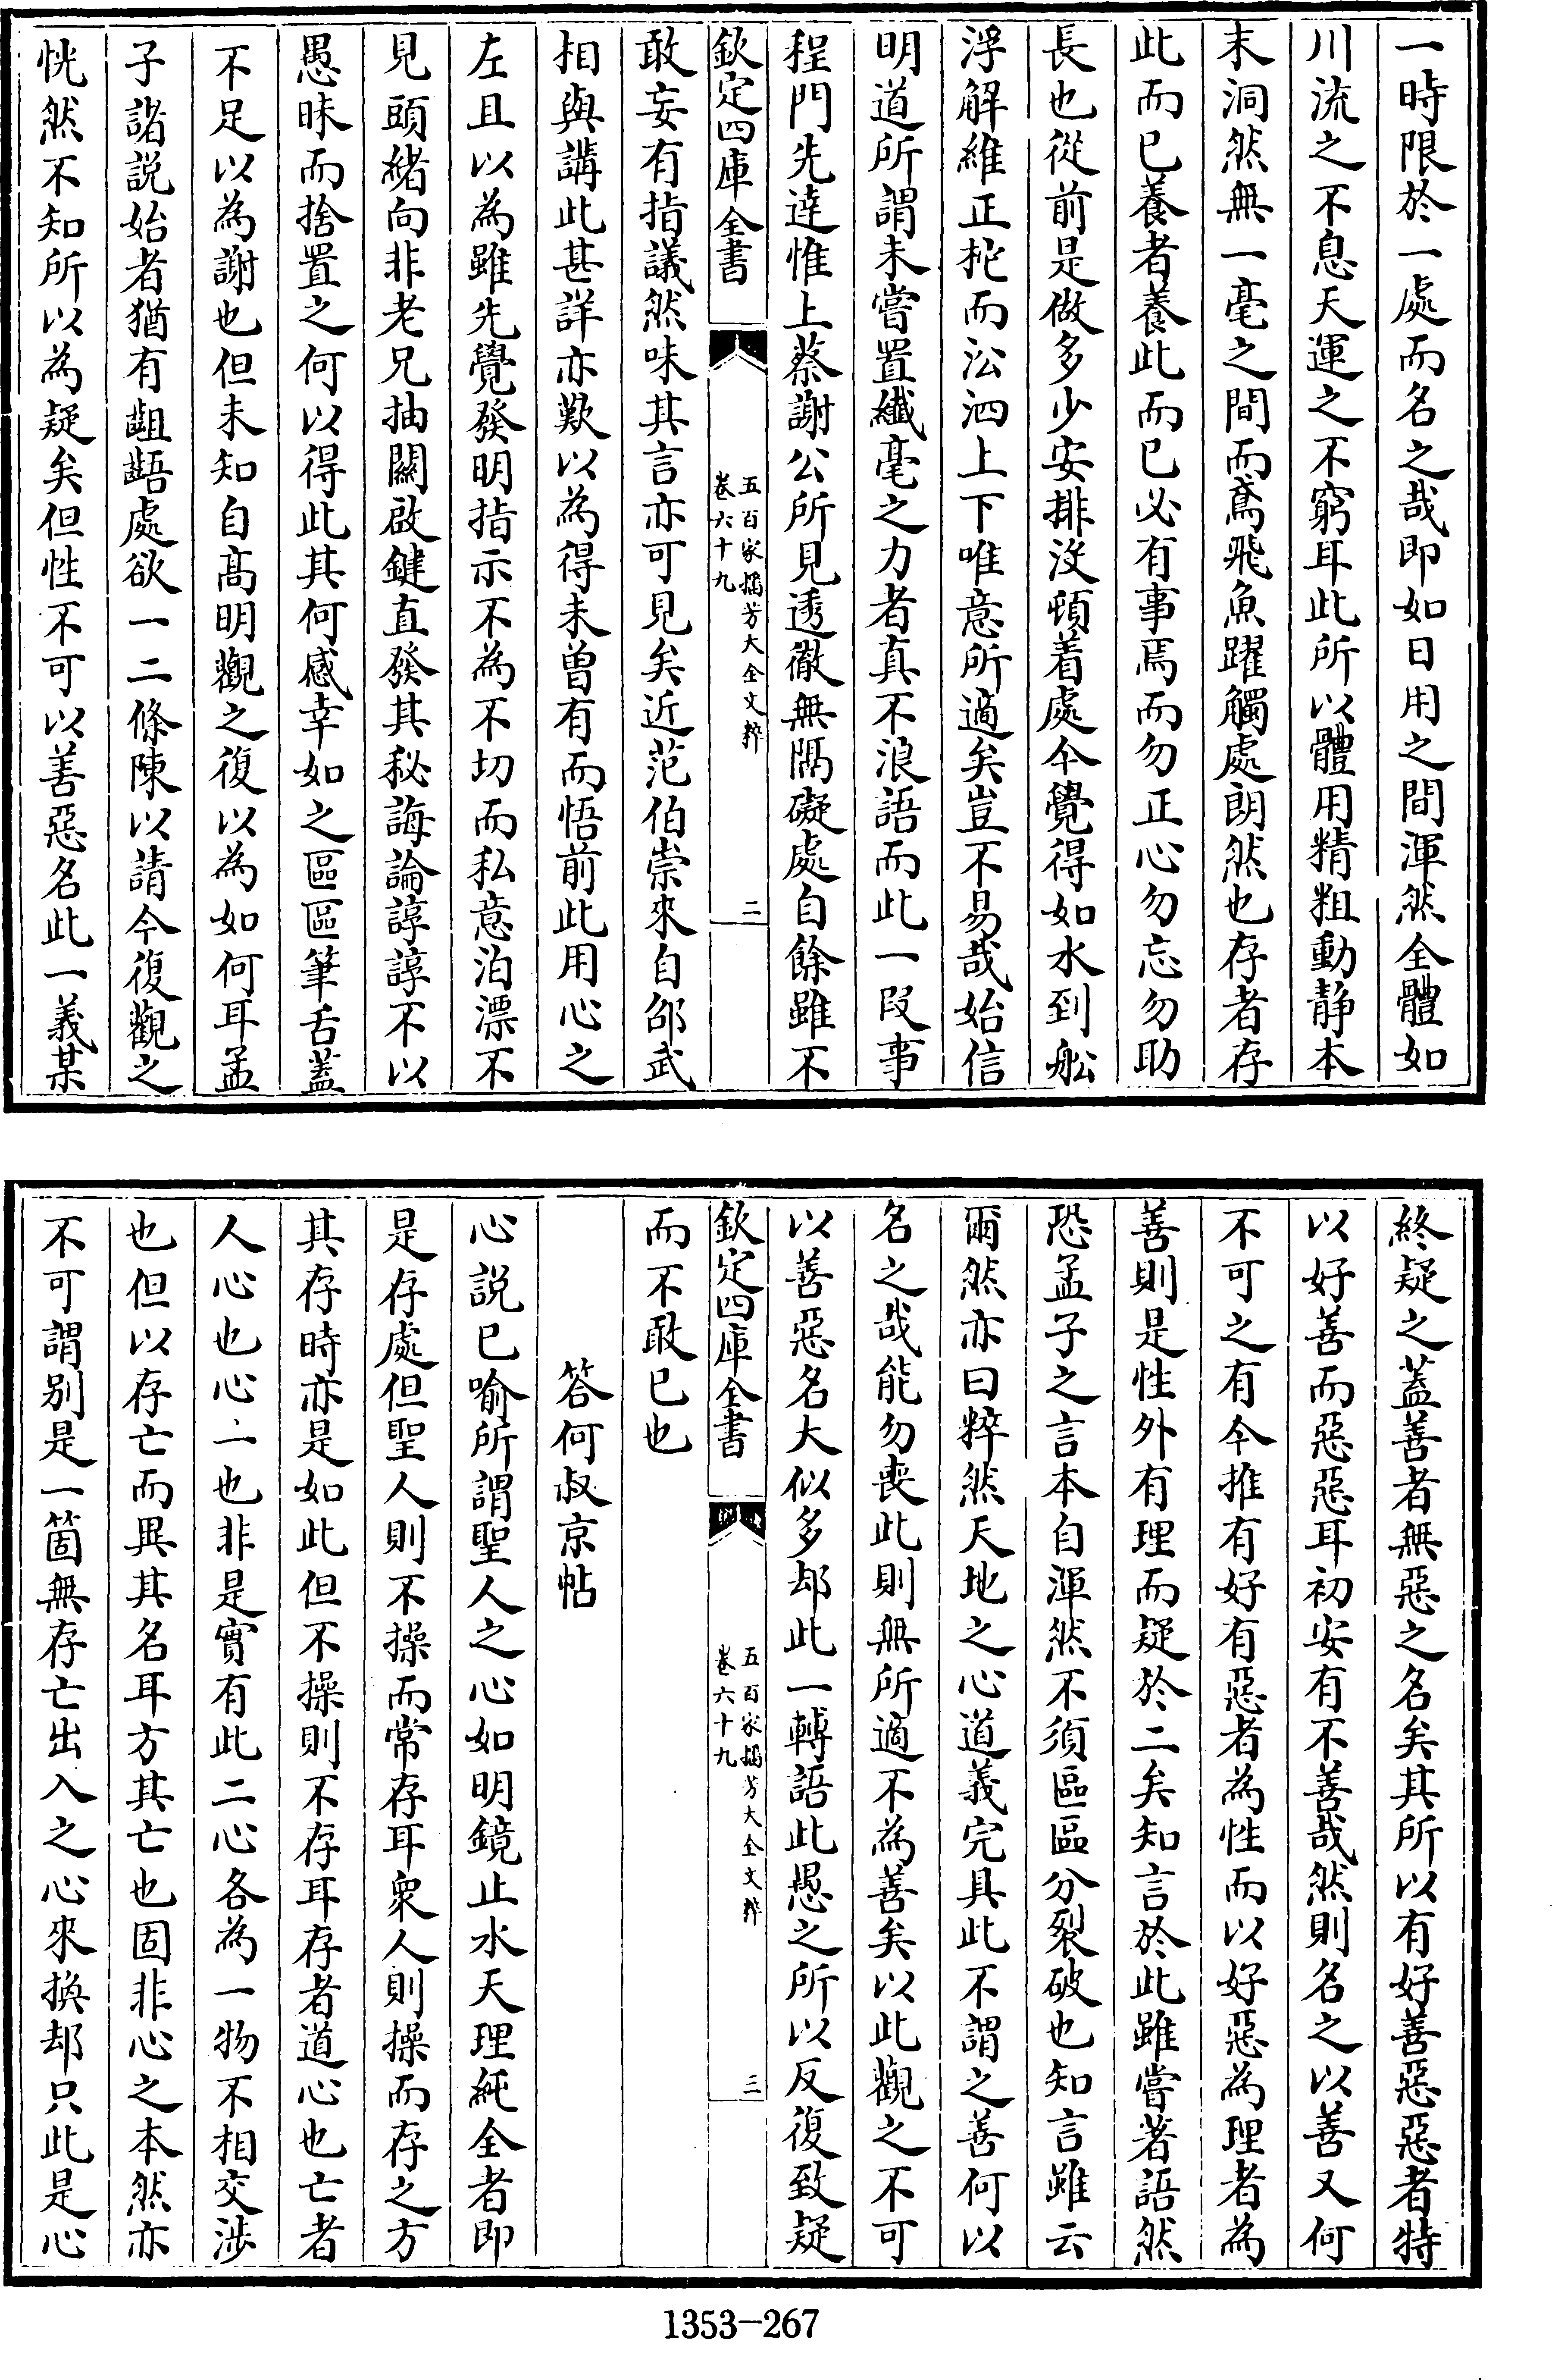 一時限於一處而名之哉即如日用之間渾然全體如
川流之不息天運之不窮耳此所以體用精粗動靜本
末洞然無一毫之間而鳶飛魚躍觸處朗然也存者存
此而已養者養此而已必有事焉而勿正心勿忘勿助
長也從前是做多少安排沒頓着處今覺得如水到船
浮解維正柂而㳂泗上下唯意所適矣豈不易哉始信
明道所謂未嘗置纖毫之力者真不浪語而此一叚事
程門先達惟上蔡謝公所見透徹無隔礙處自餘雖不
欽定四庫全書
五百家播芳大全文粹
卷六十九
二
敢妄有指議然味其言亦可見矣近范伯崇來自邵武
相與講此甚詳亦歎以為得未曾有而悟前此用心之
左且以為雖先覺發明指示不為不切而私意泊漂不
見頭緒向非老兄抽關啟鍵直發其秘誨論諄諄不以
愚昧而捨置之何以得此其何感幸如之區區筆舌蓋
不足以為謝也但未知自高明觀之復以為如何耳孟
子諸説始者猶有齟齬處欲一二條陳以請今復觀之
恍然不知所以為疑矣但性不可以善惡名此一義某
終疑之蓋善者無惡之名矣其所以有好善惡惡者特
以好善而惡惡耳初安有不善哉然則名之以善又何
不可之有今推有好有惡者為性而以好惡為理者為
善則是性外有理而疑於二矣知言於此雖嘗著語然
恐孟子之言本自渾然不須區區分裂破也知言雖云
爾然亦曰粹然天地之心道義完具此不謂之善何以
名之哉能勿喪此則無所適不為善矣以此觀之不可
以善惡名大似多却此一轉語此愚之所以反復致疑
欽定四庫全書
五百家播芳大全文粹
卷六十九
三
而不敢已也
答何叔京帖
心説已喻所謂聖人之心如明鏡止水天理純全者即
是存處但聖人則不操而常存耳衆人則操而存之方
其存時亦是如此但不操則不存耳存者道心也亡者
人心也心一也非是實有此二心各為一物不相交渉
也但以存亡而異其名耳方其亡也固非心之本然亦
不可謂别是一箇無存亡出入之心來換却只此是心
1353-267